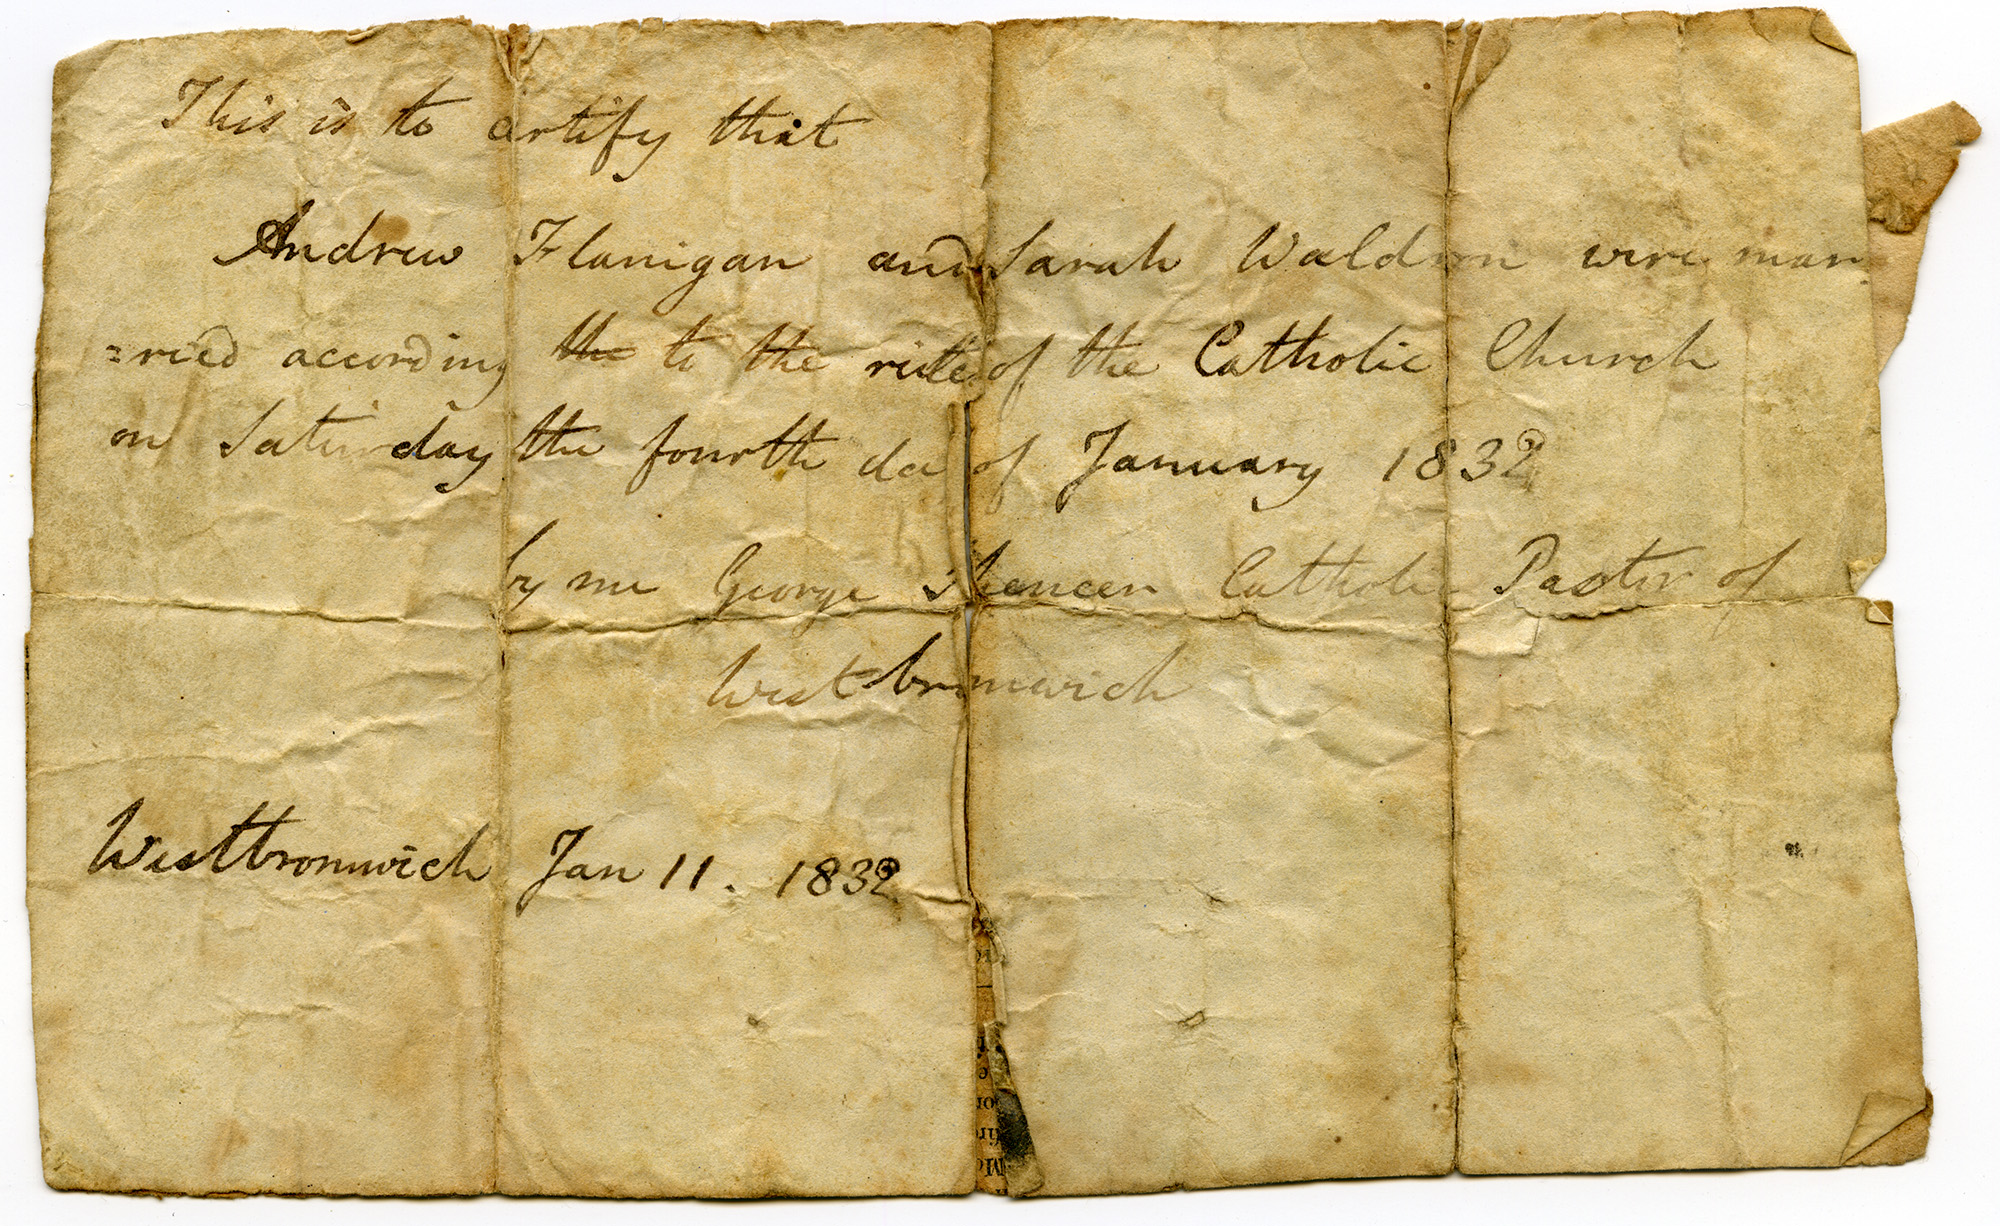 This is to certify that
Andrew Flanigan and Sarah Waldron were mar
=ried according the to the rite of the Catholic Church
on Saturday the fourth da of January 1832
by me George Spencer Catholic Pastor of
West bromwich
Westbromwich Jan 11. 1832